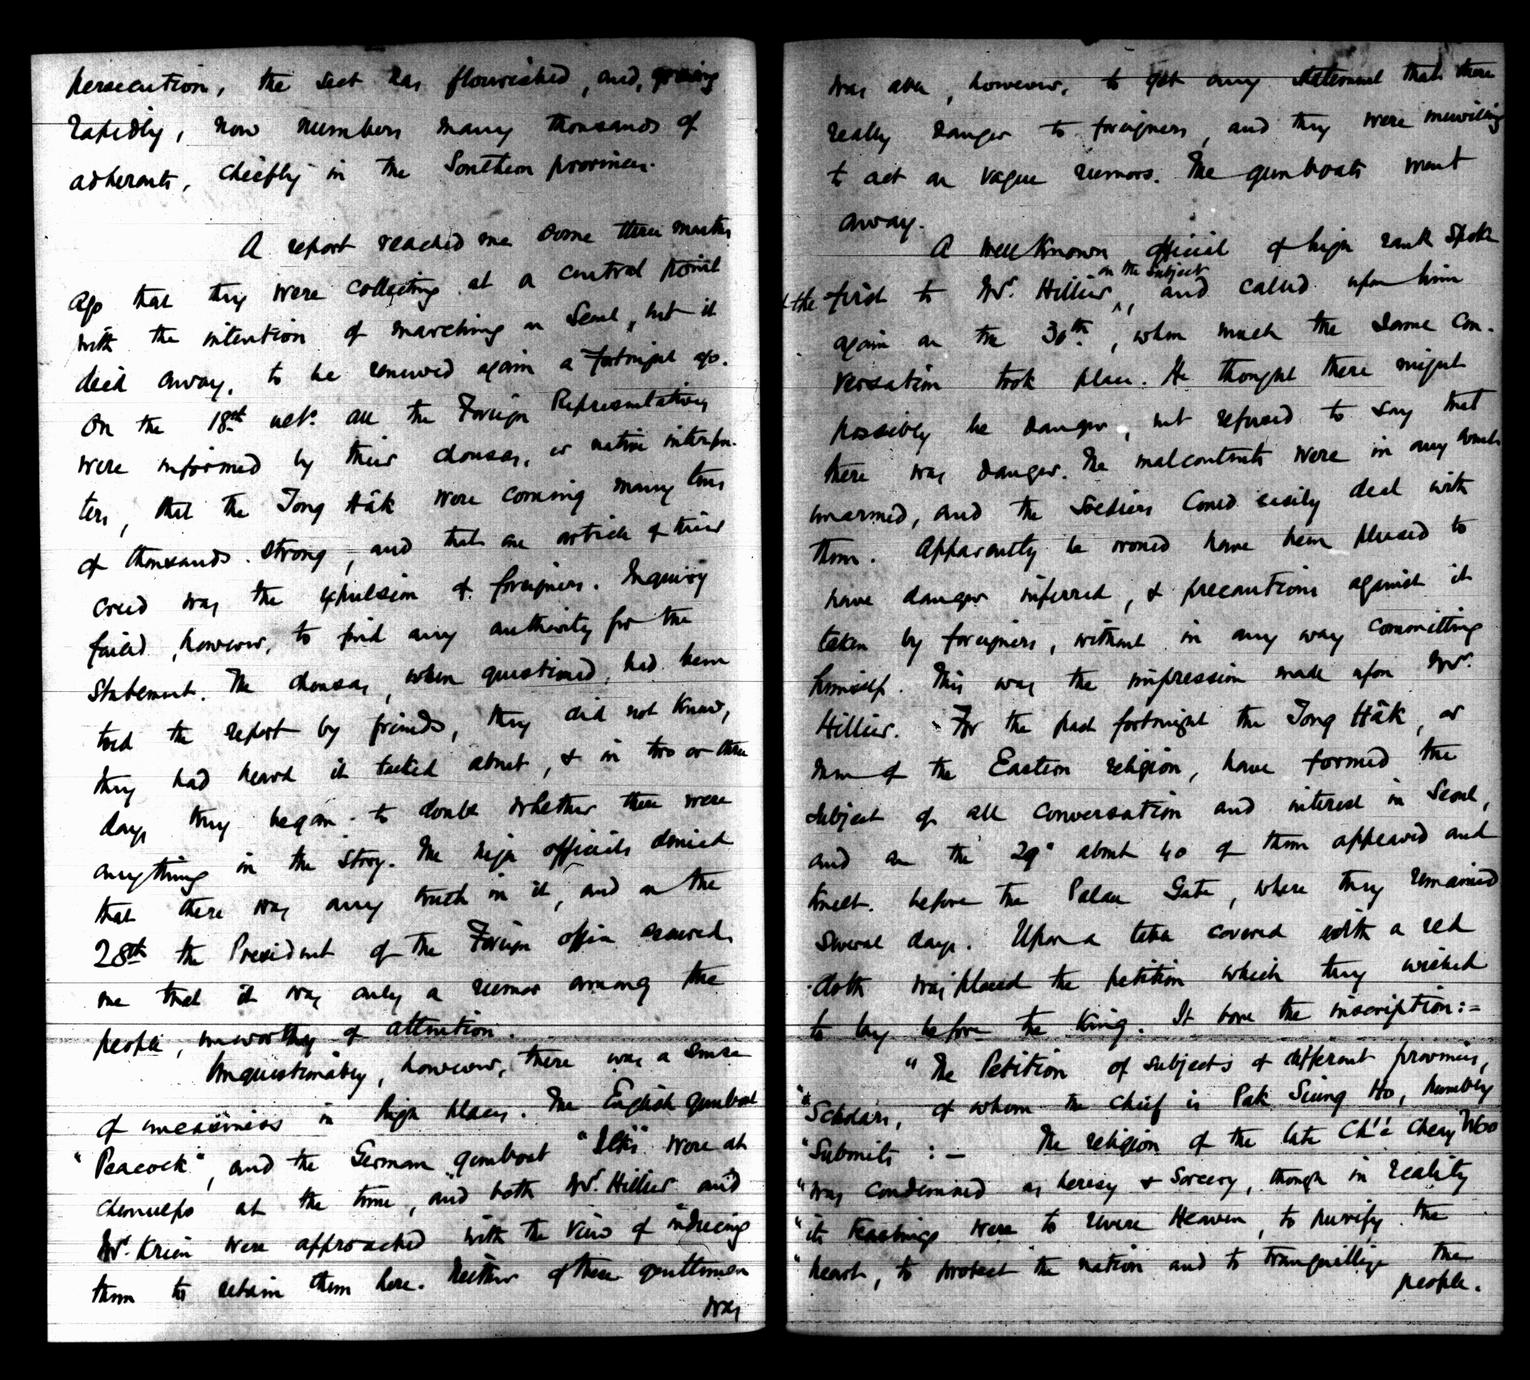 persecution, the sect has flourished, and, growing
rapidly, now numbers many thousands of
adherents, chiefly in the Southern provinces.
A report reached me some three months
ago that they were collecting at a central point
with the intention of marching on Seoul, but it
died away, to be renewed again a fortnight ago.
On the 18th ult. all the Foreign Representatives
were informed by their chousas, or native interpre-
ters, that the Tong Hâk were coming many tens
of thousands strong, and that one article of their
creed was the expulsion of foreigners. Inquiry
failed, however, to find any authority for the
statement. The chousas, when questioned, had been
told the report by friends, they did not know,
they had heard it talked about, & in two or three
days they began to doubt whether there were
anything in the story. The high officials denied
that there was any truth in it, and on the
28th the President of the Foreign Office assured
me that it was only a rumor among the
people, unworthy of attention.
Unquestionably, however, there was a sense
of uneasiness in high places. The English gunboat
"Peacock", and the German gunboat "Iltis" were at
Chemulpo at the time, and both Mr. Hillier and
Mr. Krien were approached with the view of inducing
them to retain them here. Neither of these gentlemen
was
was able, however, to get any statement that there
really danger to foreigners, and they were unwilling
to act on vague rumors. The gunboats went
away.
A well known official of high rank spoke
first to Mr. Hillier on the subject, and called upon him
again on the 30th, when much the same con-
versation took place. He thought there might
possibly be danger, but refused to say that
there was danger. The malcontents were in any
unarmed, and the soldiers could easily deal with
them. Apparently he would have been pleased to
have danger inferred, & precautions against it
taken by foreigners, without in any way committing
himself. This was the impression made upon Mr.
Hillier. For the past fortnight the Tong Hâk, or
men of the Eastern religion, have formed the
subject of all conversation and interest in Seoul,
and on the 29th about 40 of them appeared and
knelt before the Palace Gate, where they remained
several days. Upon a table covered with a red
cloth was placed the petition which they wished
to lay before the King. It bore the inscription:-
"The Petition of subjects of different provinces,
"Scholars, of whom the chief is Pak Seung Ho, humbly
"Submits :— The religion of the late Ch'é Chey Woo
"was condemned as heresy & sorcery, though in reality
"its teachings were to revere Heaven, to purify the
"heart, to protect the nation and to tranquillize the
people.